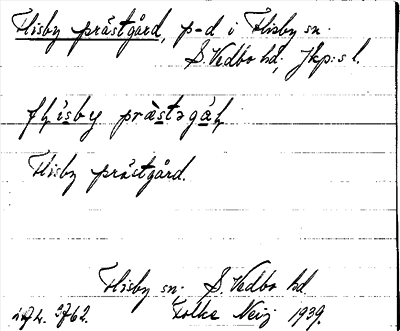 Flisby prästgård, p-d i Flisby sn.
S. Vedbo hd, Jkp:s l.
Flisby prästgård.
Flisby sn. S. Vedbo hd
2762. Folke Neij 1939